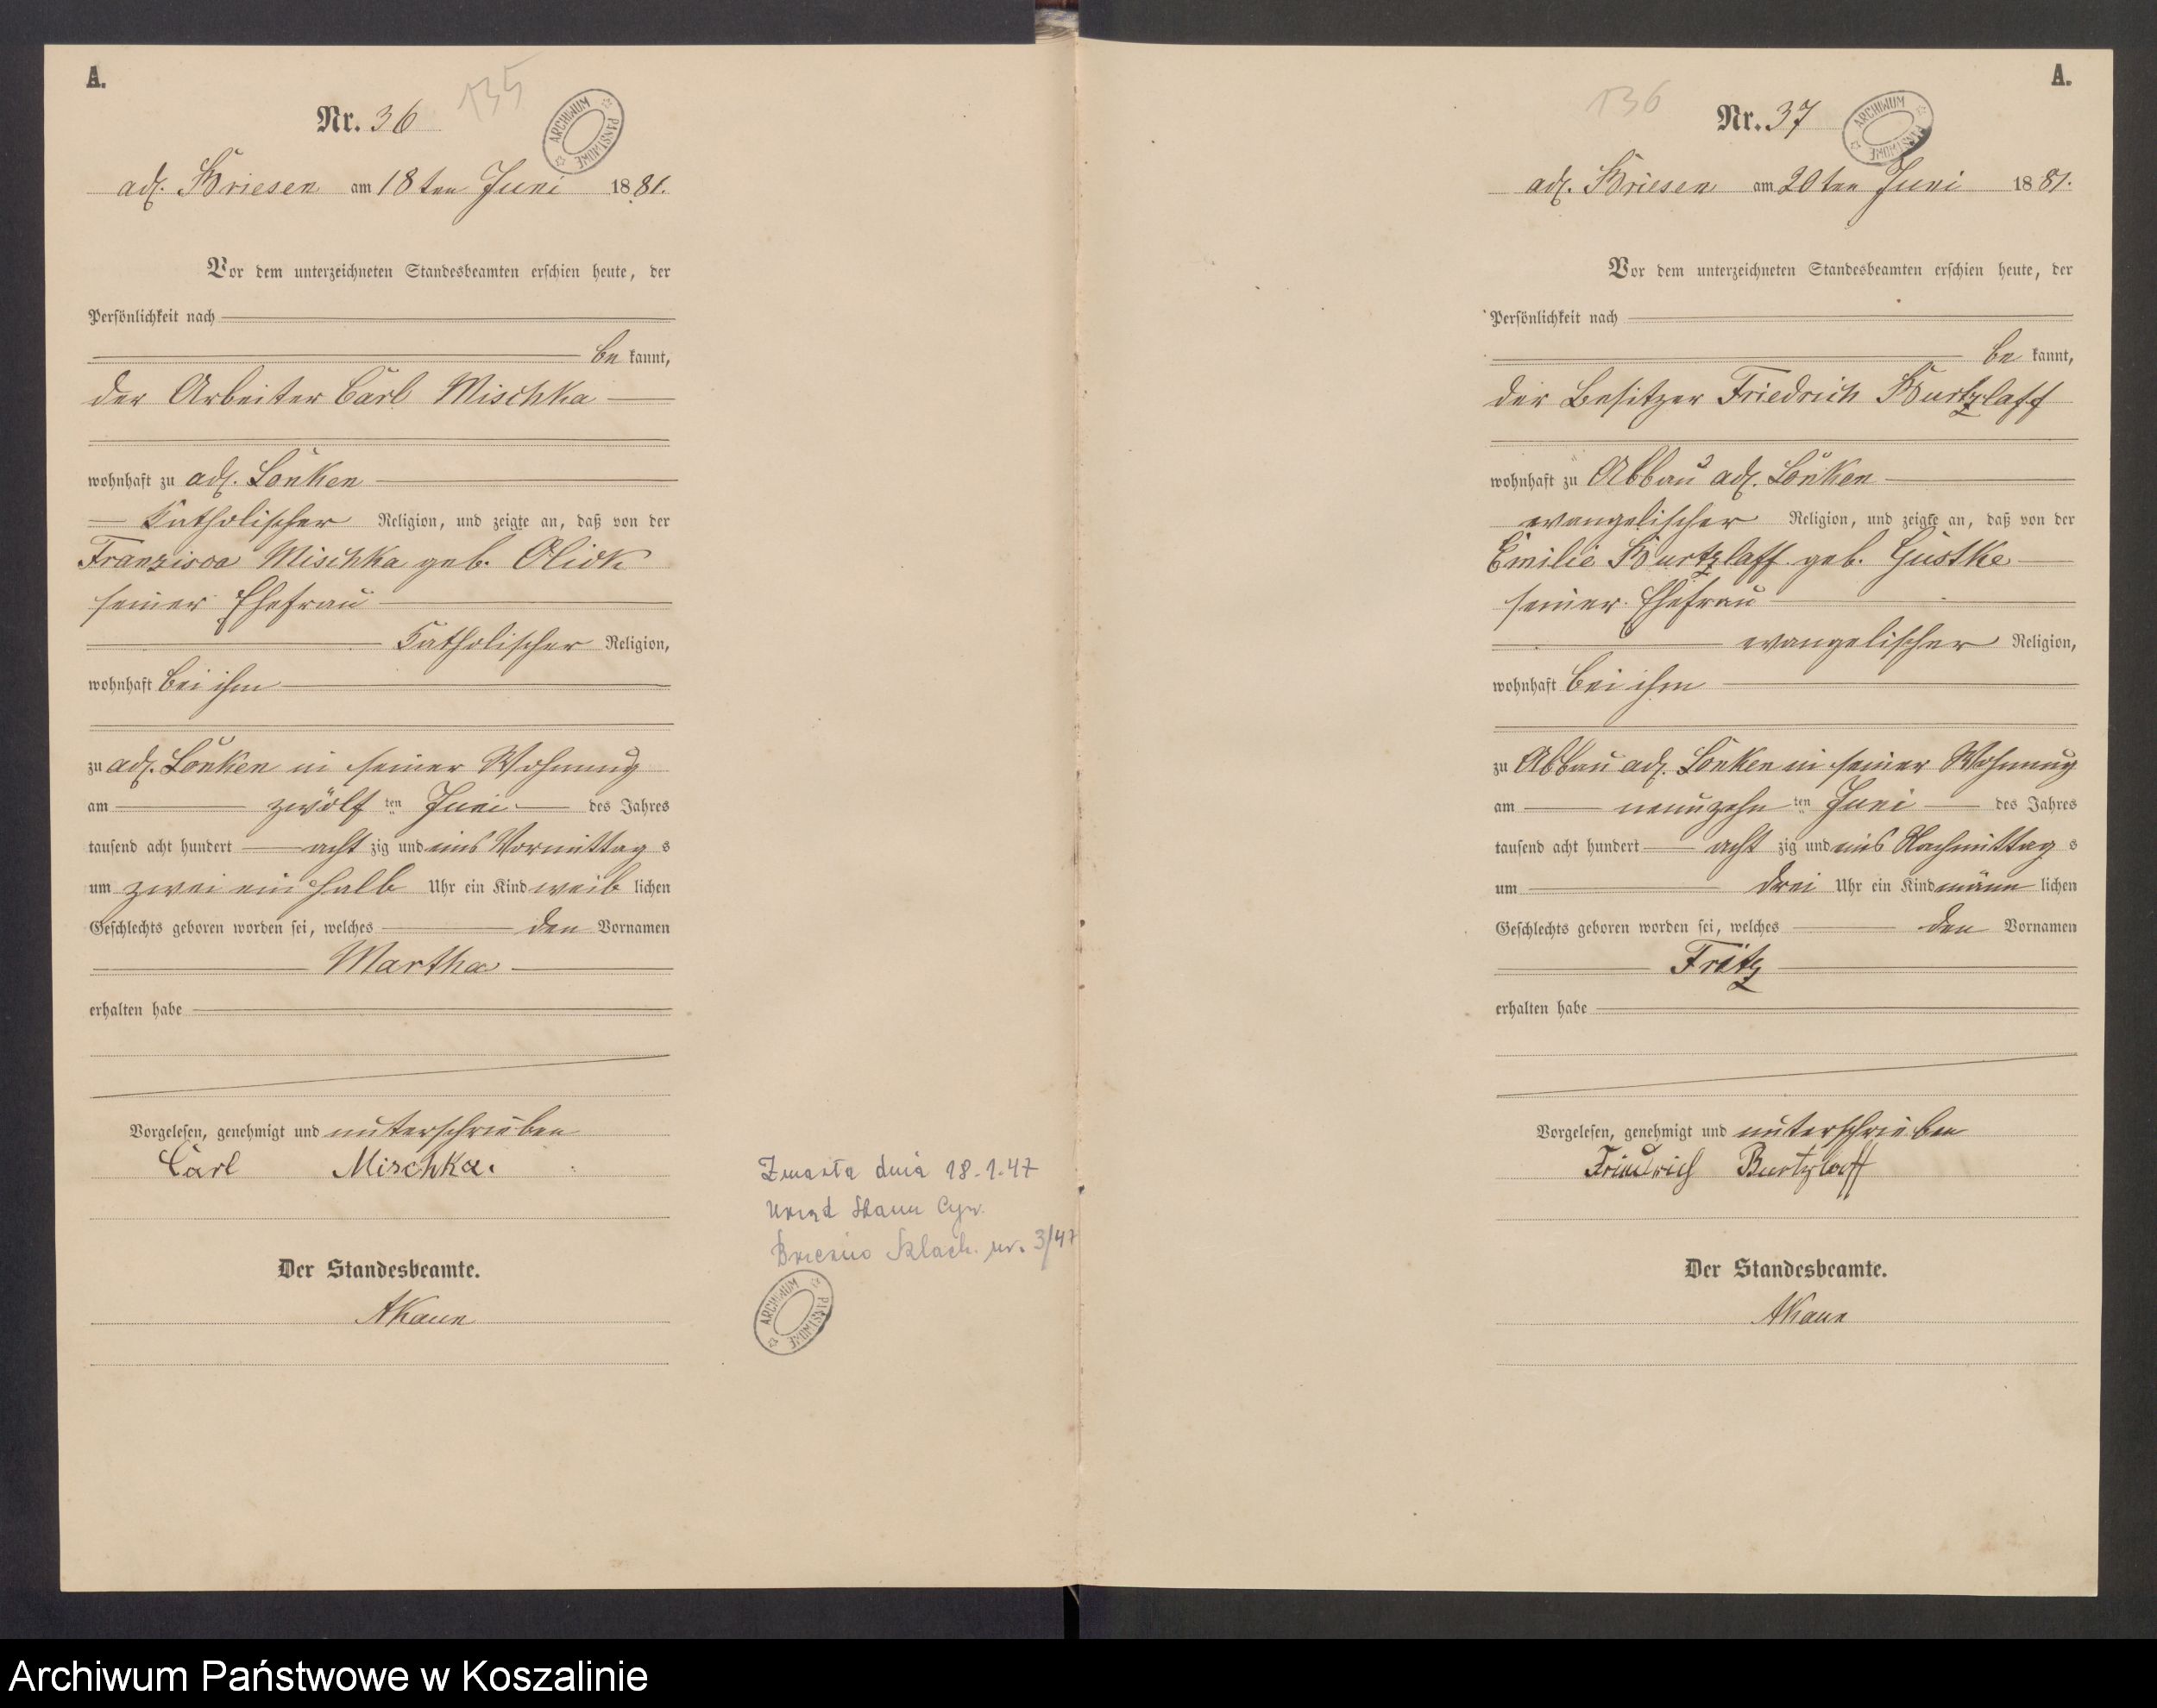 A.
135
Nr. 36
ARCHIWUM PAŃSTWOWE
adl. Briesen am 18ten Juni 1881.
Vor dem unterzeichneten Standesbeamten erschien heute, der
Persönlichkeit nach
be kannt,
der Arbeiter Carl Mischka
wohnhaft zu adl. Lonken
Katholischer Religion, und zeigte an, daß von der
Franzisca Mischka geb. Olick
seiner Ehefrau
Katholischer Religion,
wohnhaft bei ihm
zu adl. Lonken in seiner Wohnung
am zwölf ten Juni des Jahres
tausend acht hundert acht zig und eins Vormittag s
um zwei ein halb Uhr ein Kind weib lichen
Geschlechts geboren worden sei, welches den Vornamen
Martha
erhalten habe
Vorgelesen, genehmigt und unterschrieben
Carl Mischka.
Der Standesbeamte.
AKaun
Zmarła dnia 18.1.47
Urząd Stanu Cyw.
Brzeźno Szlach. nr. 3/47
ARCHIWUM PAŃSTWOWE
A.
136
Nr. 37
ARCHIWUM PAŃSTWOWE
adl. Briesen am 20ten Juni 1881.
Vor dem unterzeichneten Standesbeamten erschien heute, der
Persönlichkeit nach
be kannt,
der Besitzer Friedrich Burtzlaff
wohnhaft zu Abbau adl. Lonken
evangelischer Religion, und zeigte an, daß von der
Emilie Burtzlaff geb. Gustke
seiner Ehefrau
evangelischer Religion,
wohnhaft bei ihm
zu Abbau adl. Lonken in seiner Wohnung
am neunzehn ten Juni des Jahres
tausend acht hundert acht zig und eins Nachmittag s
um drei Uhr ein Kind männ lichen
Geschlechts geboren worden sei, welches den Vornamen
Fritz
erhalten habe
Vorgelesen, genehmigt und unterschrieben
Friedrich Burtzlaff
Der Standesbeamte.
AKaun
Archiwum Państwowe w Koszalinie